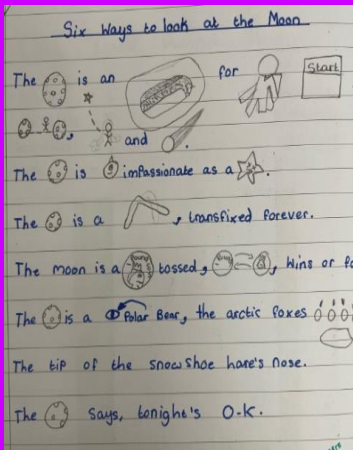 Six Ways to look at the Moon
The is an for Start
, and .
The is impassionate as a .
The is a , transfixed forever.
The moon is a tossed, , wins or
The is a Polar Bear, the arctic foxes
The tip of the snowshoe hare's nose.
The says, tonight's O-K.